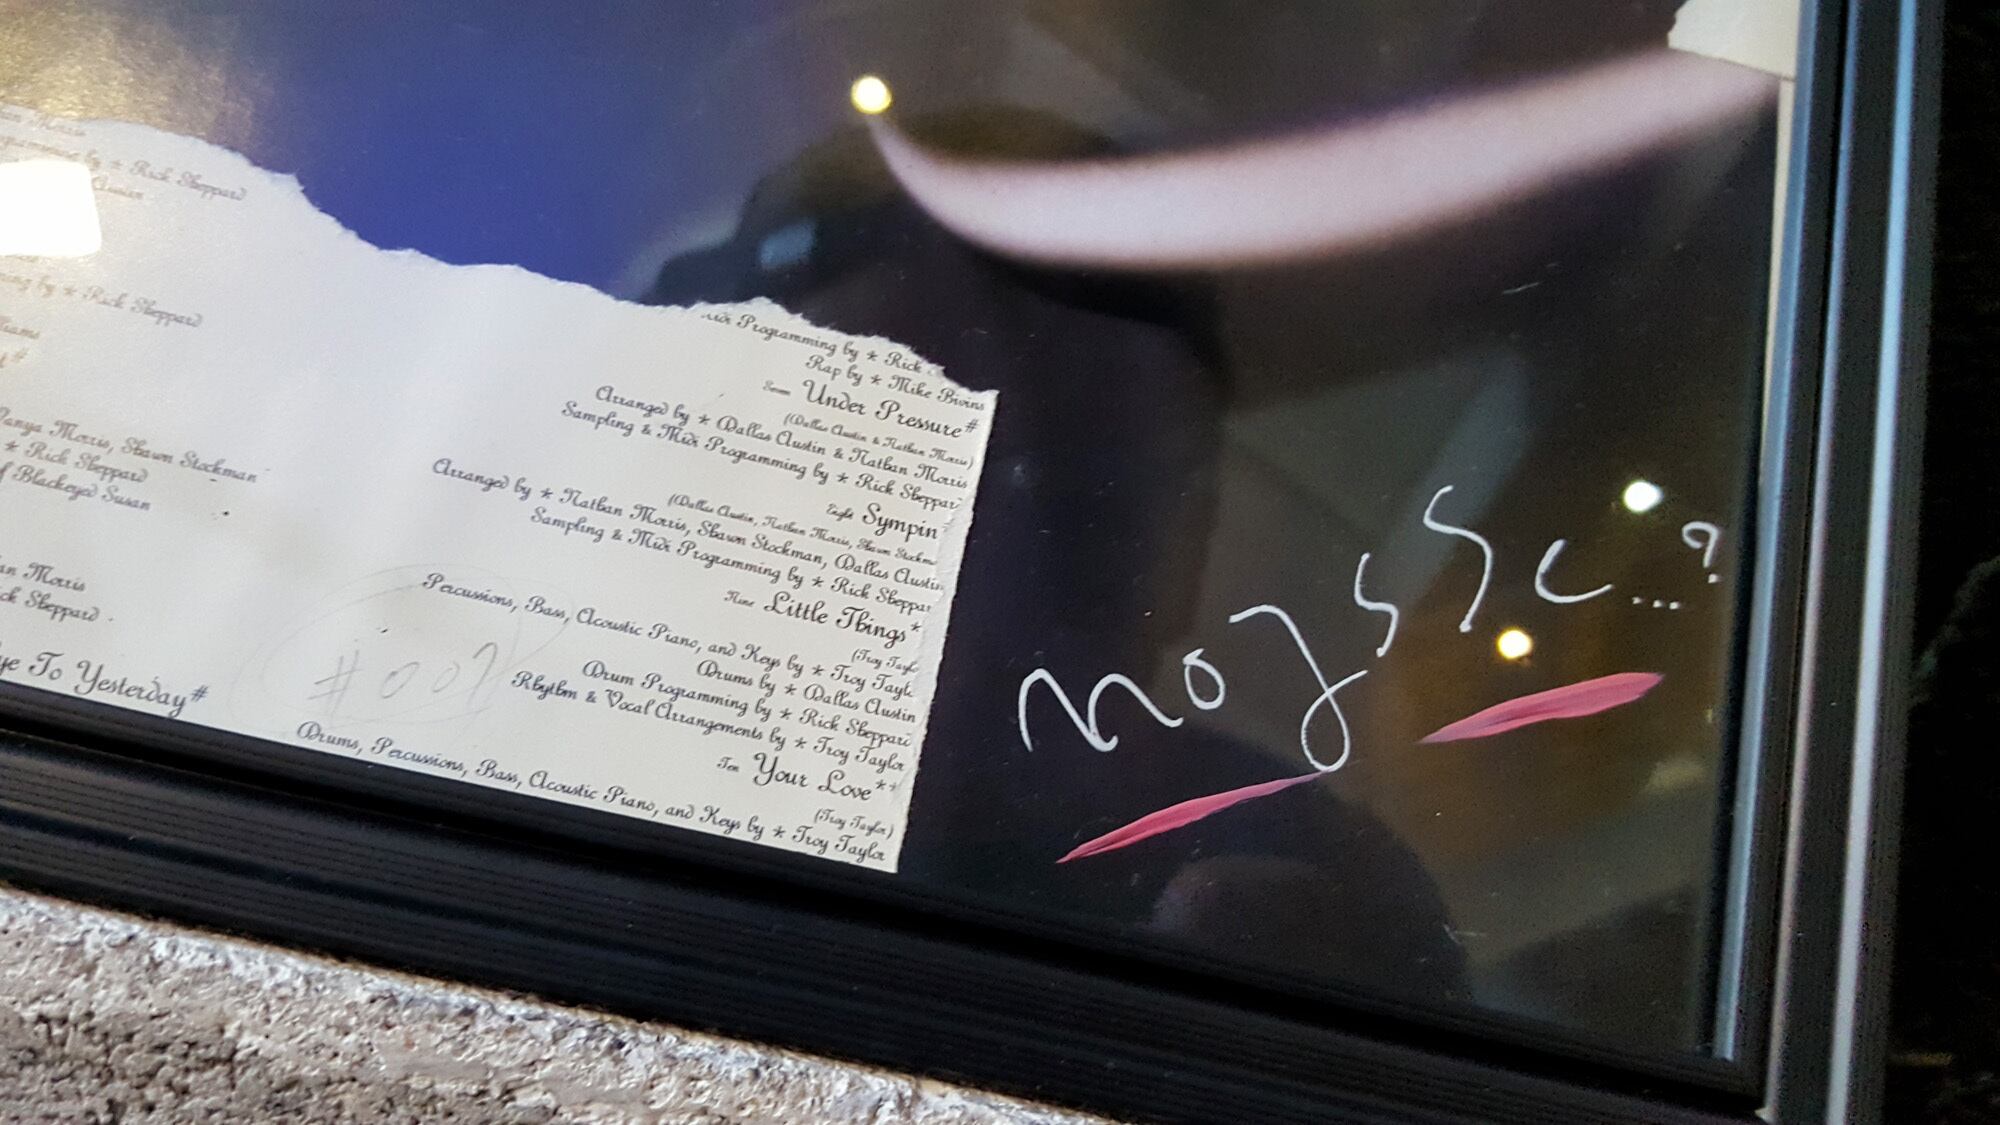 Programming by * Rick Sheppard
Austin
by * Rick Sheppard
Tanya Morris, Shawn Stockman
* Rick Sheppard
of Blackeyed Susan
Morris
Sheppard
To Yesterday#
#007
Midi Programming by * Rick
Rap by * Mike Bivins
Seven Under Pressure#
(Dallas Austin & Nathan Morris)
Arranged by * Dallas Austin & Nathan Morris
Sampling & Midi Programming by * Rick Sheppard
Eight Sympin*
(Dallas Austin, Nathan Morris, Shawn Stockman
Arranged by * Nathan Morris, Shawn Stockman, Dallas Austin
Sampling & Midi Programming by * Rick Sheppar
Nine Little Things*
(Troy Taylo
Percussions, Bass, Acoustic Piano, and Keys by * Troy Taylo
Drums by * Dallas Austin
Drum Programming by * Rick Sheppard
Rhythm & Vocal Arrangements by * Troy Taylor
Ten Your Love**
(Troy Taylor)
Drums, Percussions, Bass, Acoustic Piano, and Keys by * Troy Taylor